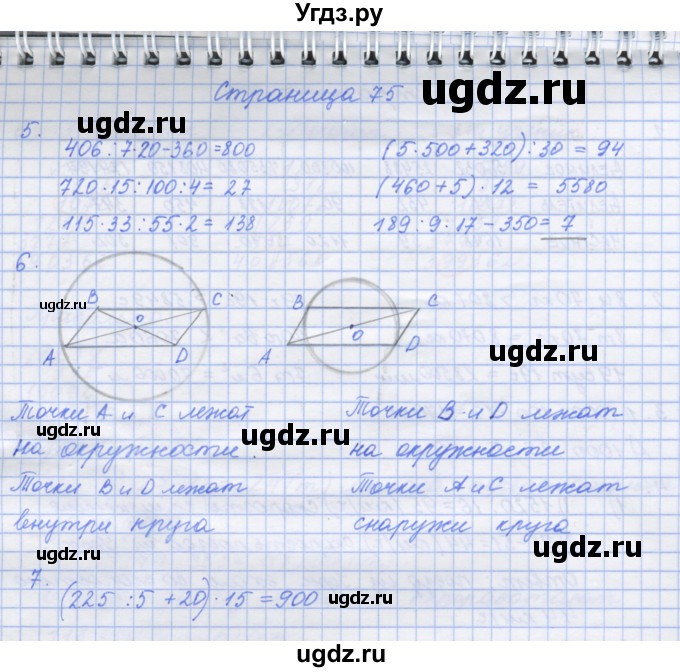 Угдз.ру
Страница 75
ugdz.ru
5.
ugdz.ru
406:7·20-360=800
(5·500+320):30=94
720·15:100:4=27
(460+5)·12=5580
ugdz.ru
ugdz.ru
115·33:55·2=138
189:9·17-350=7
6.
ugdz.ru
B
C
O
A
D
B
C
O
A
D
ugdz.ru
ugdz.ru
Точки А и С лежат
Точки В и D лежат
ugdz.ru
ugdz.ru
на окружности.
на окружности
Точки В и D лежат
Точки А и С лежат
внутри круга
снаружи круга
ugdz.ru
ugdz.ru
7.
(225:5+20)·15=900
ugdz.ru
ugdz.ru